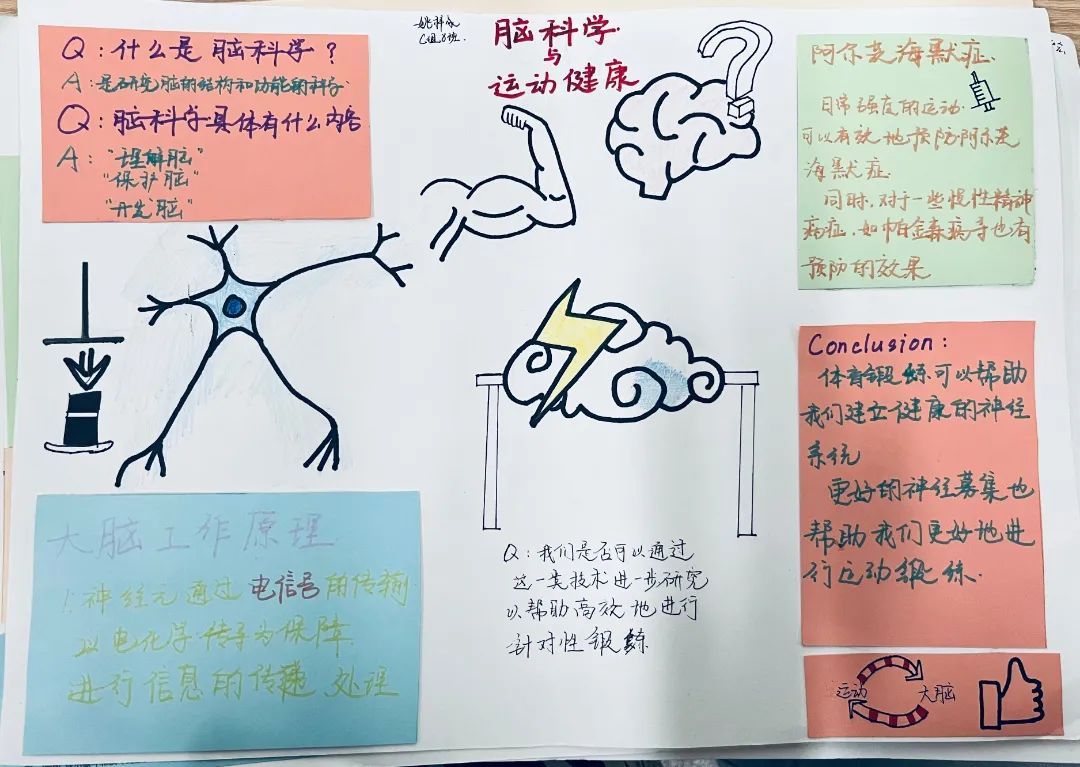 姚科成
C组8班
脑科学
与
运动健康
Q:什么是脑科学?
A:是研究脑的结构和功能的科学
Q:脑科学具体有什么内容
A:"理解脑"
"保护脑"
"开发脑"
阿尔茨海默症.
日常强度的运动.
可以有效地预防阿尔茨
海默症
同时,对于一些慢性精神
病症,如帕金森病等也有
预防的效果
大脑工作原理.
1.神经元通过电信号的传输
以电化学传导为保障.
进行信息的传递 处理
Q:我们是否可以通过
这一类技术进一步研究
以帮助高效地进行
针对性锻鍊
Conclusion:
体育锻鍊可以帮助
我们建立健康的神经
系统
更好的神经募集也
帮助我们更好地进
行运动锻鍊.
运动 大脑